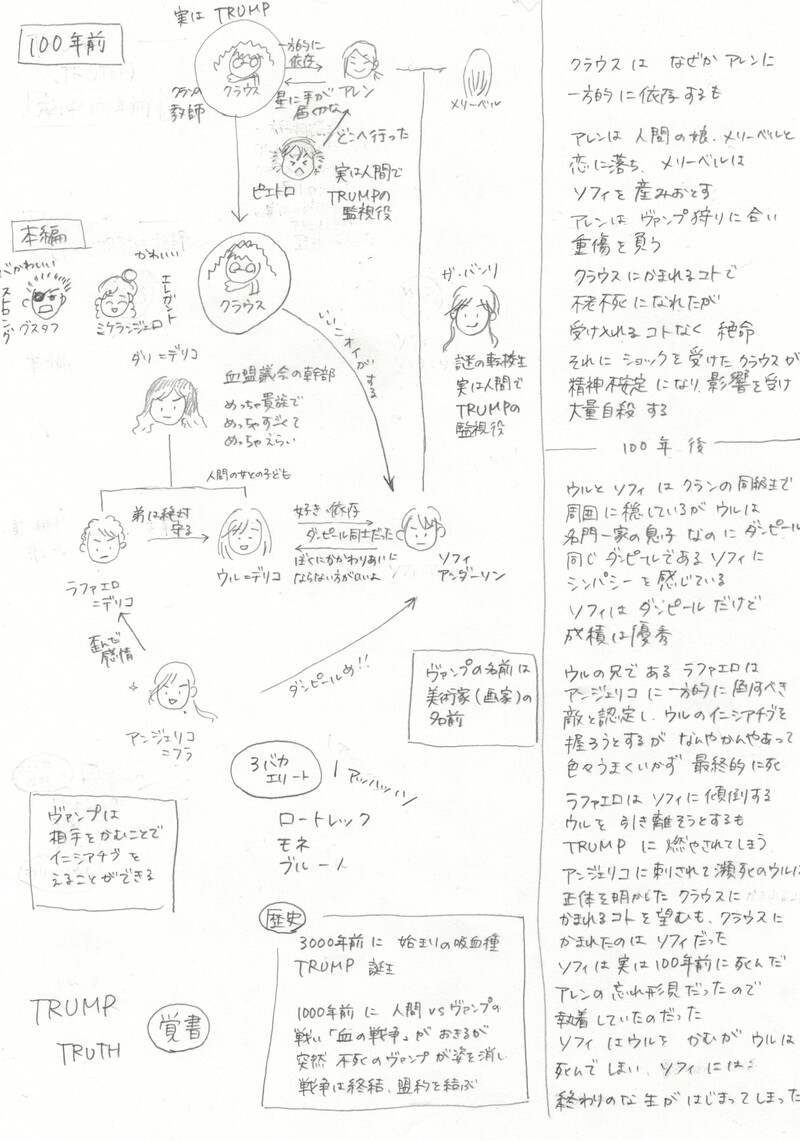 100年前
実は TRUMP
クラウス
クランの
教師
一方的に
依存
星に手が
届くかな
アレン
メリーベル
どこへ行った
ピエトロ
実は人間で
TRUMPの
監視役
本編
かわいい
ストロング
グスタフ
かわいい
エレガント
ミケランジェロ
クラウス
いいニオイがする
ガ・バンリ
謎の転校生
実は人間で
TRUMPの
監視役
ダリ=デリコ
血盟議会の幹部
めっちゃ貴族で
めっちゃすごくて
めっちゃえらい
人間の女との子ども
弟は絶対
守る
好き・依存
ダンピール同士だった
ぼくにかかわりあいに
ならない方がいいよ
ラファエロ
=デリコ
ウル=デリコ
ソフィ
アンダーソン
歪んだ
感情
ダンピールめ!!
アンジェリコ
=フラ
ヴァンプの名前は
美術家(画家)の
名前
3バカ
エリート
アッハッハッハ
ロートレック
モネ
ブルーノ
ヴァンプは
相手をかむことで
イニシアチヴを
えることができる
歴史
3000年前に 始まりの吸血種
TRUMP 誕生
1000年前に 人間 vs ヴァンプの
戦い「血の戦争」がおきるが
突然 不死のヴァンプが姿を消し
戦争は終結、盟約を結ぶ
TRUMP
TRUTH
覚書
クラウスは なぜか アレンに
一方的に依存するも
アレンは 人間の娘、メリーベルと
恋に落ち、メリーベルは
ソフィを 産みおとす
アレンは ヴァンプ狩りに合い
重傷を負う
クラウスにかまれるコトで
不老不死になれたが
受け入れるコトなく 絶命
それに ショックを受けたクラウスが
精神不安定 になり、影響を受け
大量自殺 する
100年 後
ウルと ソフィ は クランの同級生で
周囲に隠しているが ウルは
名門一家の息子 なのに ダンピール
同じ ダンピールである ソフィに
シンパシーを感じている
ソフィは ダンピールだけど
成績は優秀
ウルの兄で ある ラファエロは
アンジェリコ に一方的に 倒すべき
敵と認定し、ウルのイニシアチヴを
握ろうとするが なんやかんやあって
色々うまくいかず 最終的に死
ラファエロは ソフィに傾倒する
ウルを 引き離そうとするも
TRUMP に 燃やされてしまう
アンジェリコに刺されて瀕死のウルは
正体を明かした クラウスに
かまれるコトを望むも、クラウスに
かまれたのは ソフィだった
ソフィは 実は100年前に死んだ
アレンの忘れ形見だったので
執着していたのだった
ソフィ は ウルを かむが ウルは
死んでしまい、ソフィ には
終わりのな 生が はじまってしまった